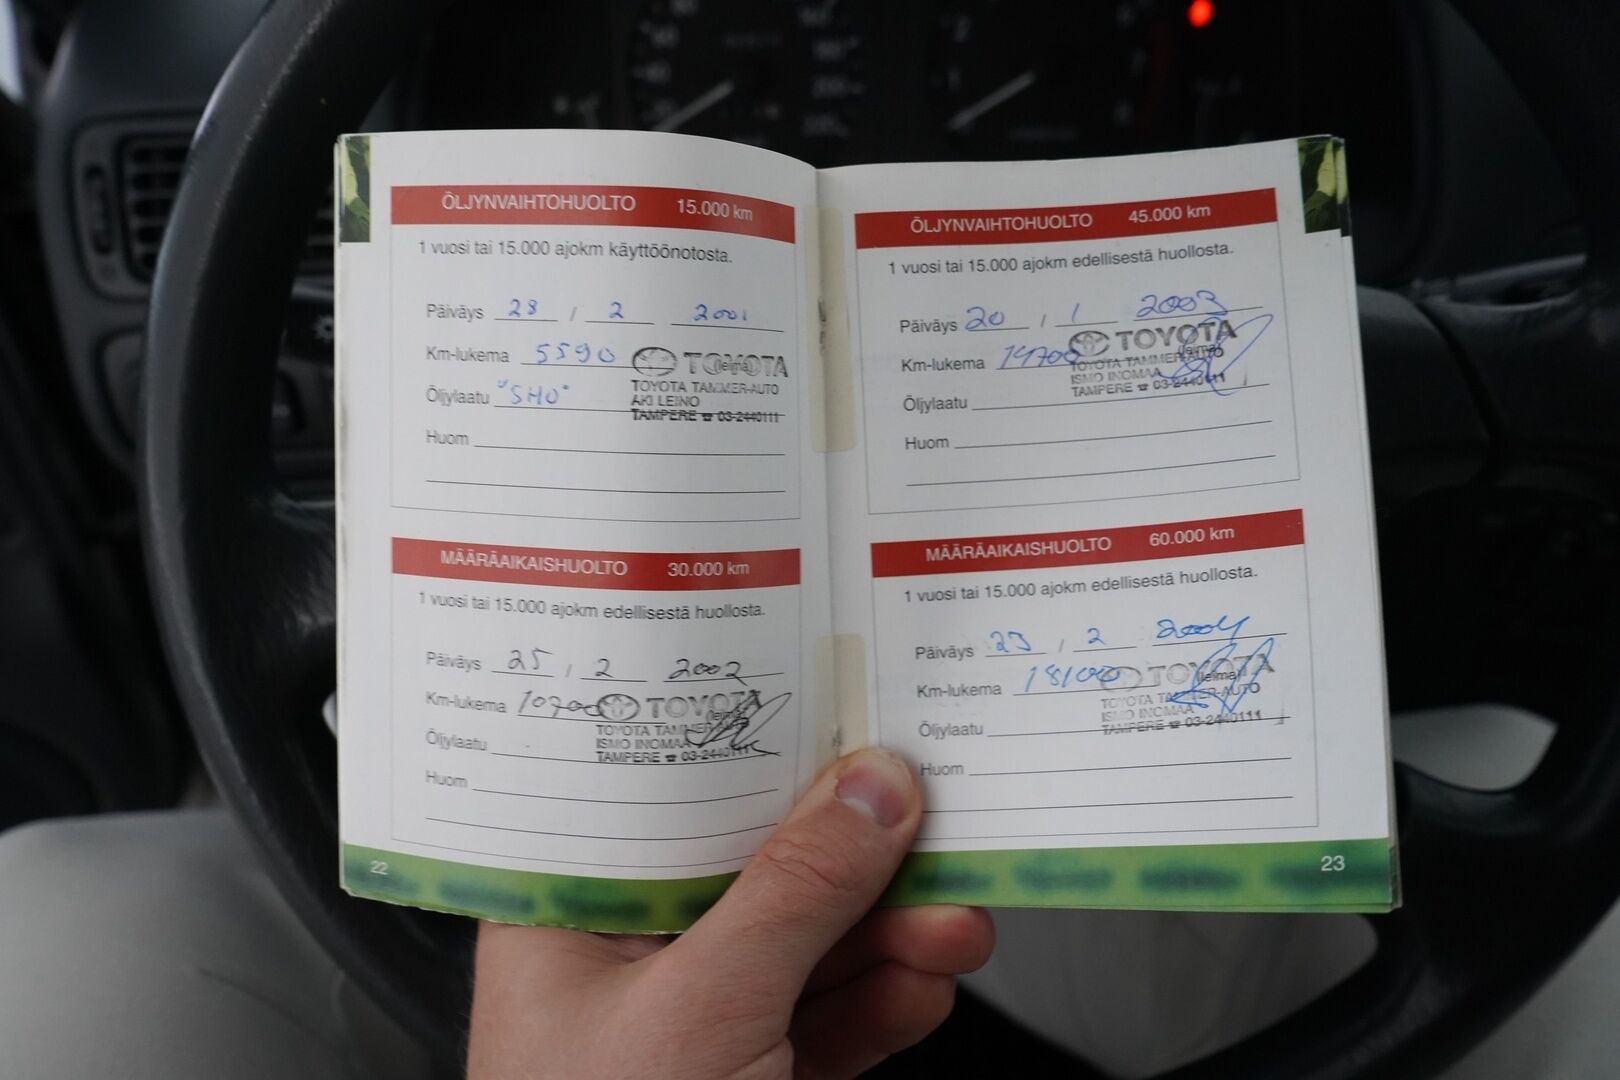 ÖLJYNVAIHTOHUOLTO 15.000 km
1 vuosi tai 15.000 ajokm käyttöönotosta.
Päiväys 28 / 2 2001
Km-lukema 5590
TOYOTA
(leima)
TOYOTA TAMMER-AUTO
Öljylaatu "SHO"
AKI LEINO
TAMPERE ☎ 03-2440111
Huom
MÄÄRÄAIKAISHUOLTO 30.000 km
1 vuosi tai 15.000 ajokm edellisestä huollosta.
Päiväys 25 / 2 2002
Km-lukema 10700
TOYOTA
(leima)
TOYOTA TAMMER-AUTO
Öljylaatu
ISMO INOMAA
TAMPERE ☎ 03-2440111
Huom
22
ÖLJYNVAIHTOHUOLTO 45.000 km
1 vuosi tai 15.000 ajokm edellisestä huollosta.
Päiväys 20 / 1 2003
Km-lukema 14700
TOYOTA
(leima)
TOYOTA TAMMER-AUTO
ISMO INOMAA
TAMPERE ☎ 03-2440111
Öljylaatu
Huom
MÄÄRÄAIKAISHUOLTO 60.000 km
1 vuosi tai 15.000 ajokm edellisestä huollosta.
Päiväys 23 / 2 2004
Km-lukema 18100
TOYOTA
(leima)
TOYOTA TAMMER-AUTO
ISMO INOMAA
TAMPERE ☎ 03-2440111
Öljylaatu
Huom
23